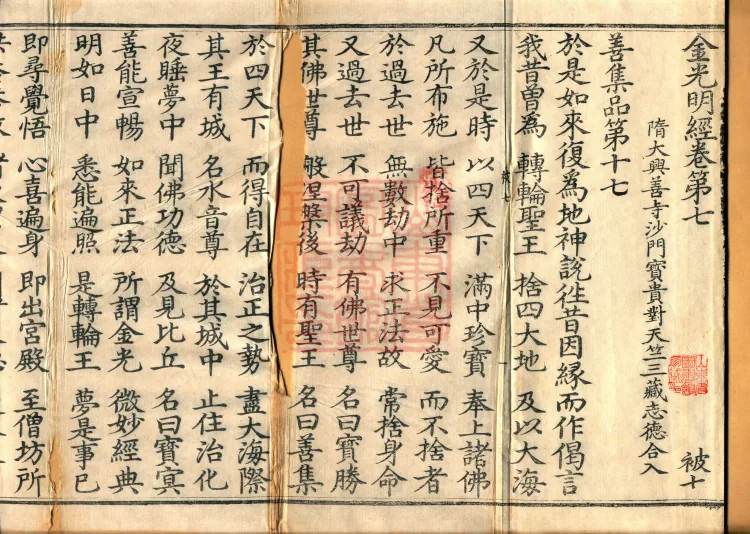 金光明經卷第七 被十
隋大興善寺沙門寶貴對天竺三藏志德合入
善集品第十七
於是如來復爲地神說往昔因緣而作偈言
我昔曾爲 轉輪聖王 捨四大地 及以大海
又於是時 以四天下 滿中珍寶 奉上諸佛
凡所布施 皆捨所重 不見可愛 而不捨者
於過去世 無數劫中 求正法故 常捨身命
又過去世 不可議劫 有佛世尊 名曰寶勝
其佛世尊 般涅槃後 時有聖王 名曰善集
於四天下 而得自在 治正之勢 盡大海際
其王有城 名水音尊 於其城中 止住治化
夜睡夢中 聞佛功德 及見比丘 名曰寶冥
善能宣暢 如來正法 所謂金光 微妙經典
明如日中 悉能遍照 是轉輪王 夢是事已
即尋覺悟 心喜遍身 即出宮殿 至僧坊所